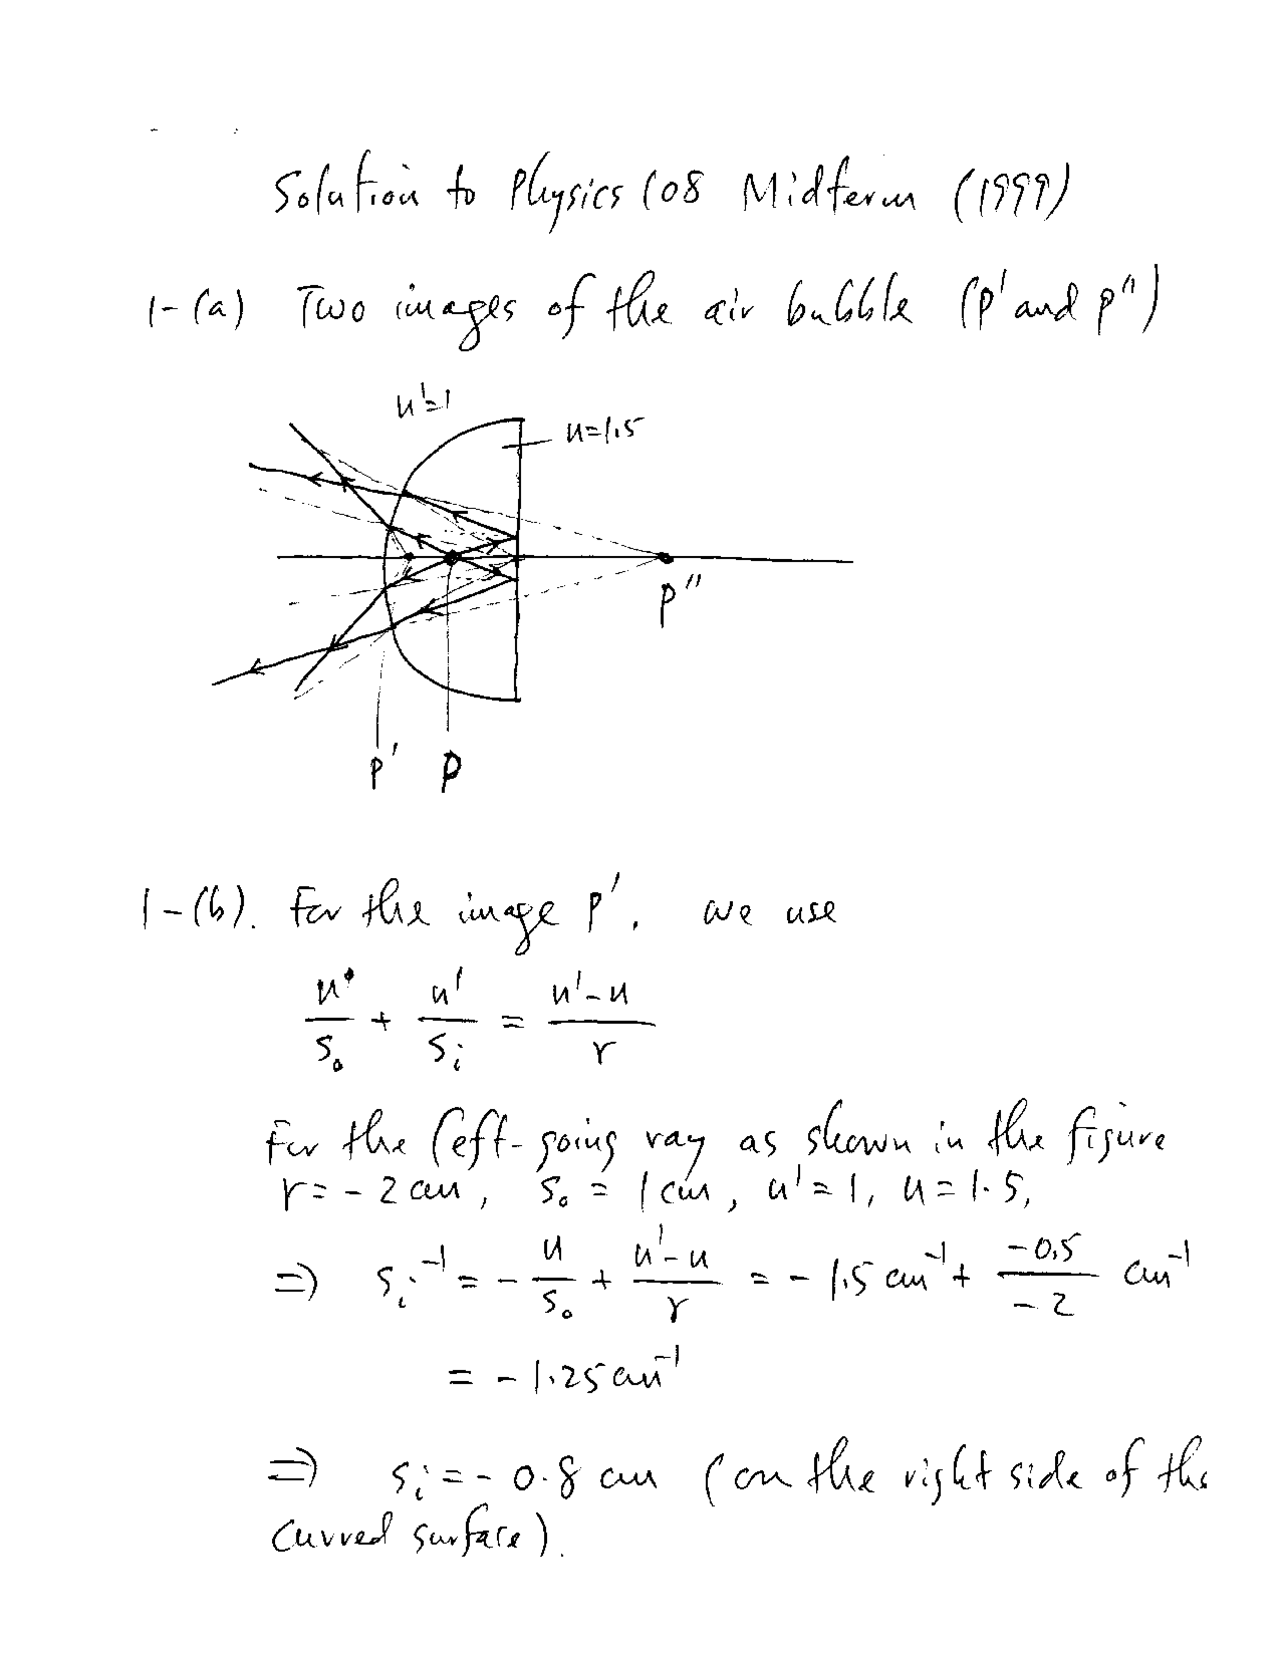 Solution to Physics 108 Midterm (1999)
1-(a) Two images of the air bubble (p' and p")
n'=1
n=1.5
p"
p' p
1-(b). For the image p', we use
n/s₀ + n'/sᵢ = (n'-n)/r
For the left-going ray as shown in the figure
r = -2 cm, s₀ = 1 cm, n' = 1, n = 1.5,
⇒ sᵢ⁻¹ = - n/s₀ + (n'-n)/r = - 1.5 cm⁻¹ + (-0.5)/(-2) cm⁻¹
= - 1.25 cm⁻¹
⇒ sᵢ = - 0.8 cm (on the right side of the
curved surface).